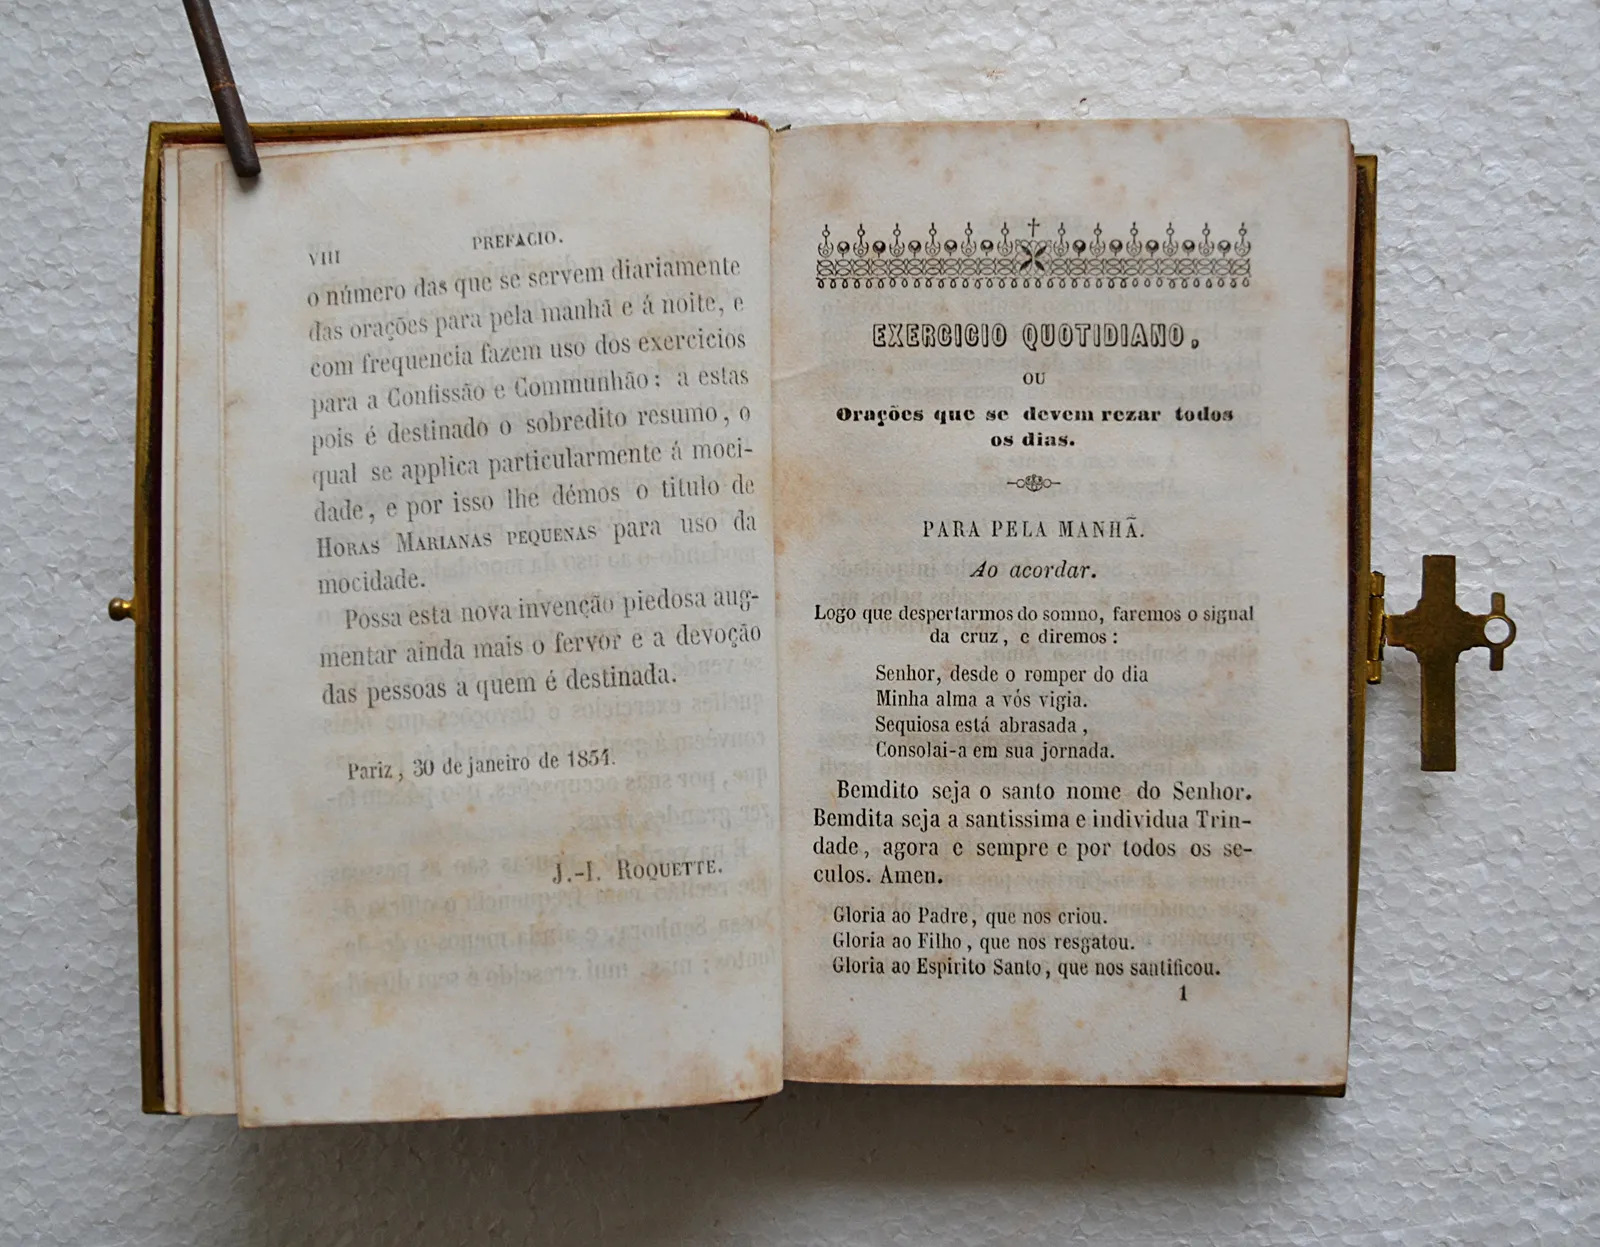 VIII
PREFACIO.
o número das que se servem diariamente
das orações para pela manhã e á noite, e
com frequencia fazem uso dos exercicios
para a Confissão e Communhão: a estas
pois é destinado o sobredito resumo, o
qual se applica particularmente á moci-
dade, e por isso lhe démos o titulo de
HORAS MARIANAS PEQUENAS para uso da
mocidade.
Possa esta nova invenção piedosa aug-
mentar ainda mais o fervor e a devoção
das pessoas a quem é destinada.
Pariz, 30 de janeiro de 1854.
J.-I. ROQUETTE.
EXERCICIO QUOTIDIANO,
OU
Orações que se devem rezar todos
os dias.
PARA PELA MANHÃ.
Ao acordar.
Logo que despertarmos do somno, faremos o signal
da cruz, e diremos:
Senhor, desde o romper do dia
Minha alma a vós vigia.
Sequiosa está abrasada,
Consolai-a em sua jornada.
Bemdito seja o santo nome do Senhor.
Bemdita seja a santissima e individua Trin-
dade, agora e sempre e por todos os se-
culos. Amen.
Gloria ao Padre, que nos criou.
Gloria ao Filho, que nos resgatou.
Gloria ao Espirito Santo, que nos santificou.
1